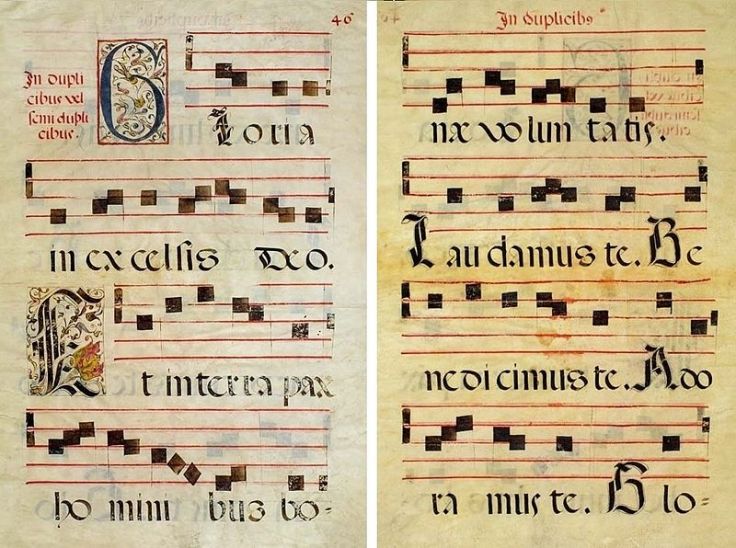 46
In dupli
cibus vel
semi dupli
cibus.
Gloria
in excelsis Deo.
Et in terra pax
ho mini bus bo-
In duplicibꝰ
næ volun tatis.
Lau damus te. Be
nedi cimus te. Ado
ra mus te. Glo-